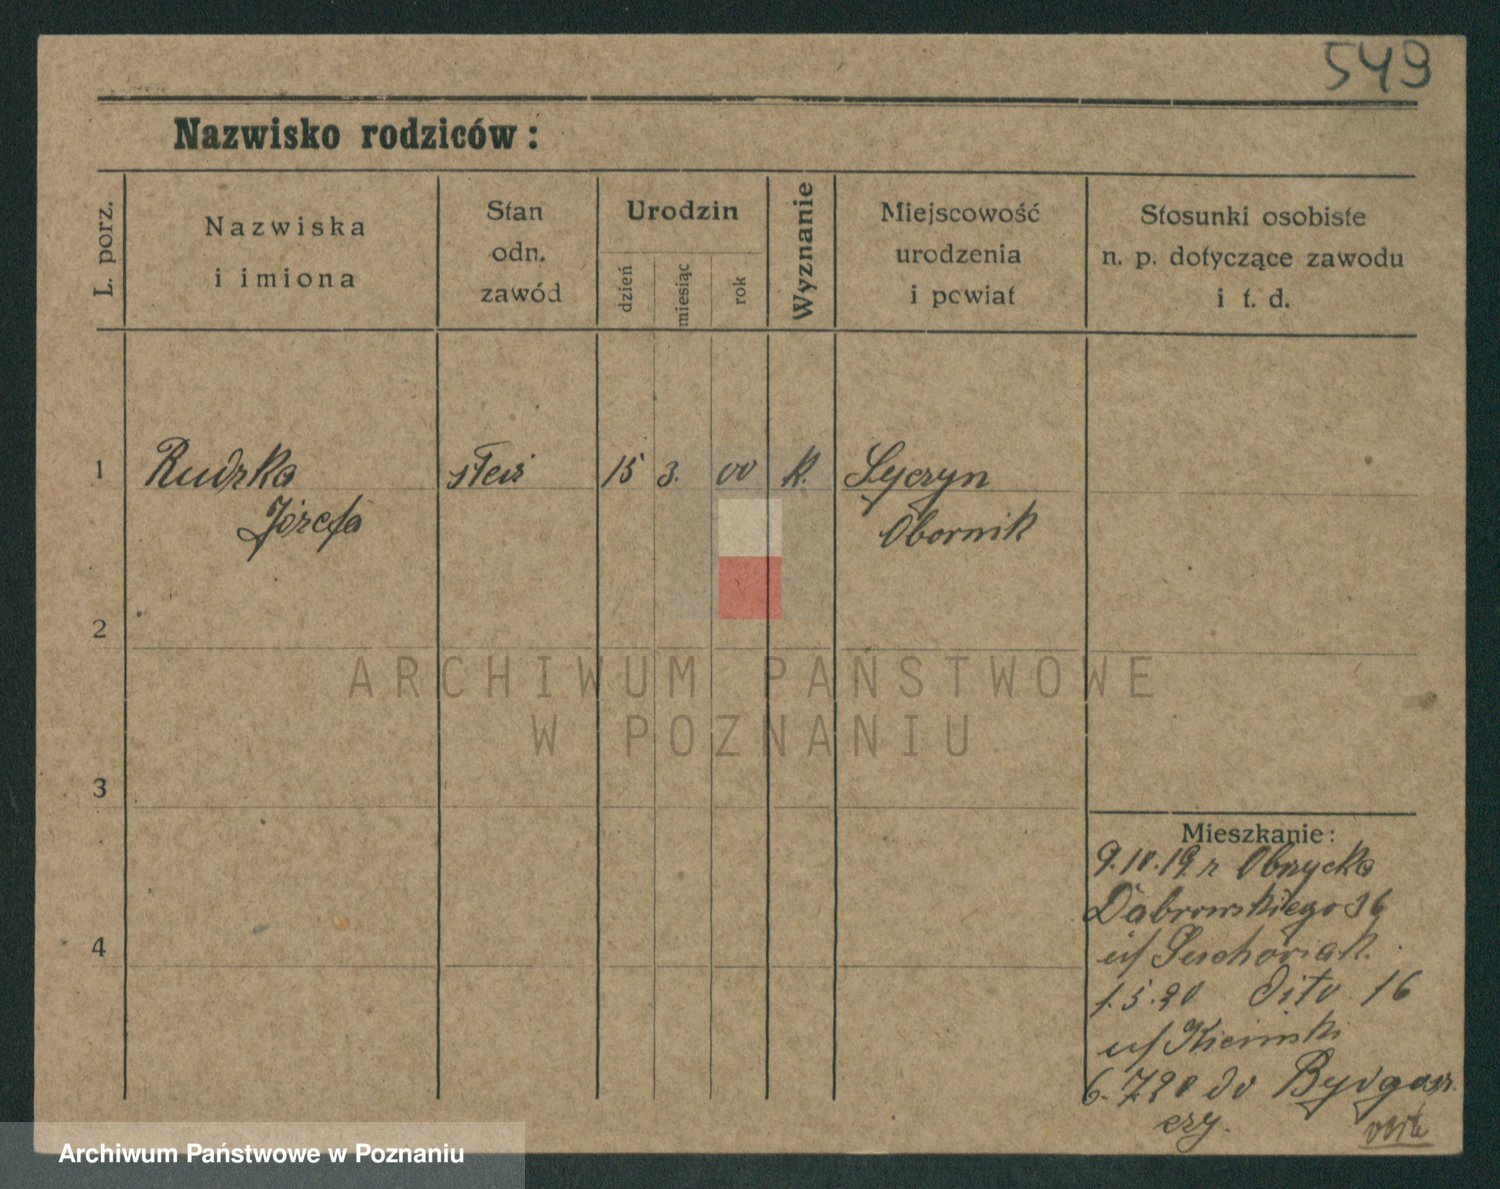 549
Nazwisko rodziców:
L. porz.
Nazwiska
i imiona
Stan
odn.
zawód
Urodzin
dzień
miesiąc
rok
Wyznanie
Miejscowość
urodzenia
i powiat
Stosunki osobiste
n. p. dotyczące zawodu
i t. d.
1 Rudzka 15 3. 00 k.
Józefa Obornik
2
ARCHIWUM PAŃSTWOWE
W POZNANIU
3
Mieszkanie:
9.10.19 r Obrzycka
Dąbrowskiego 36
4
u/ Suchoriak.
1.5.20 dito 16
u/
6.7.20 do Bydgosz
czy.
Archiwum Państwowe w Poznaniu